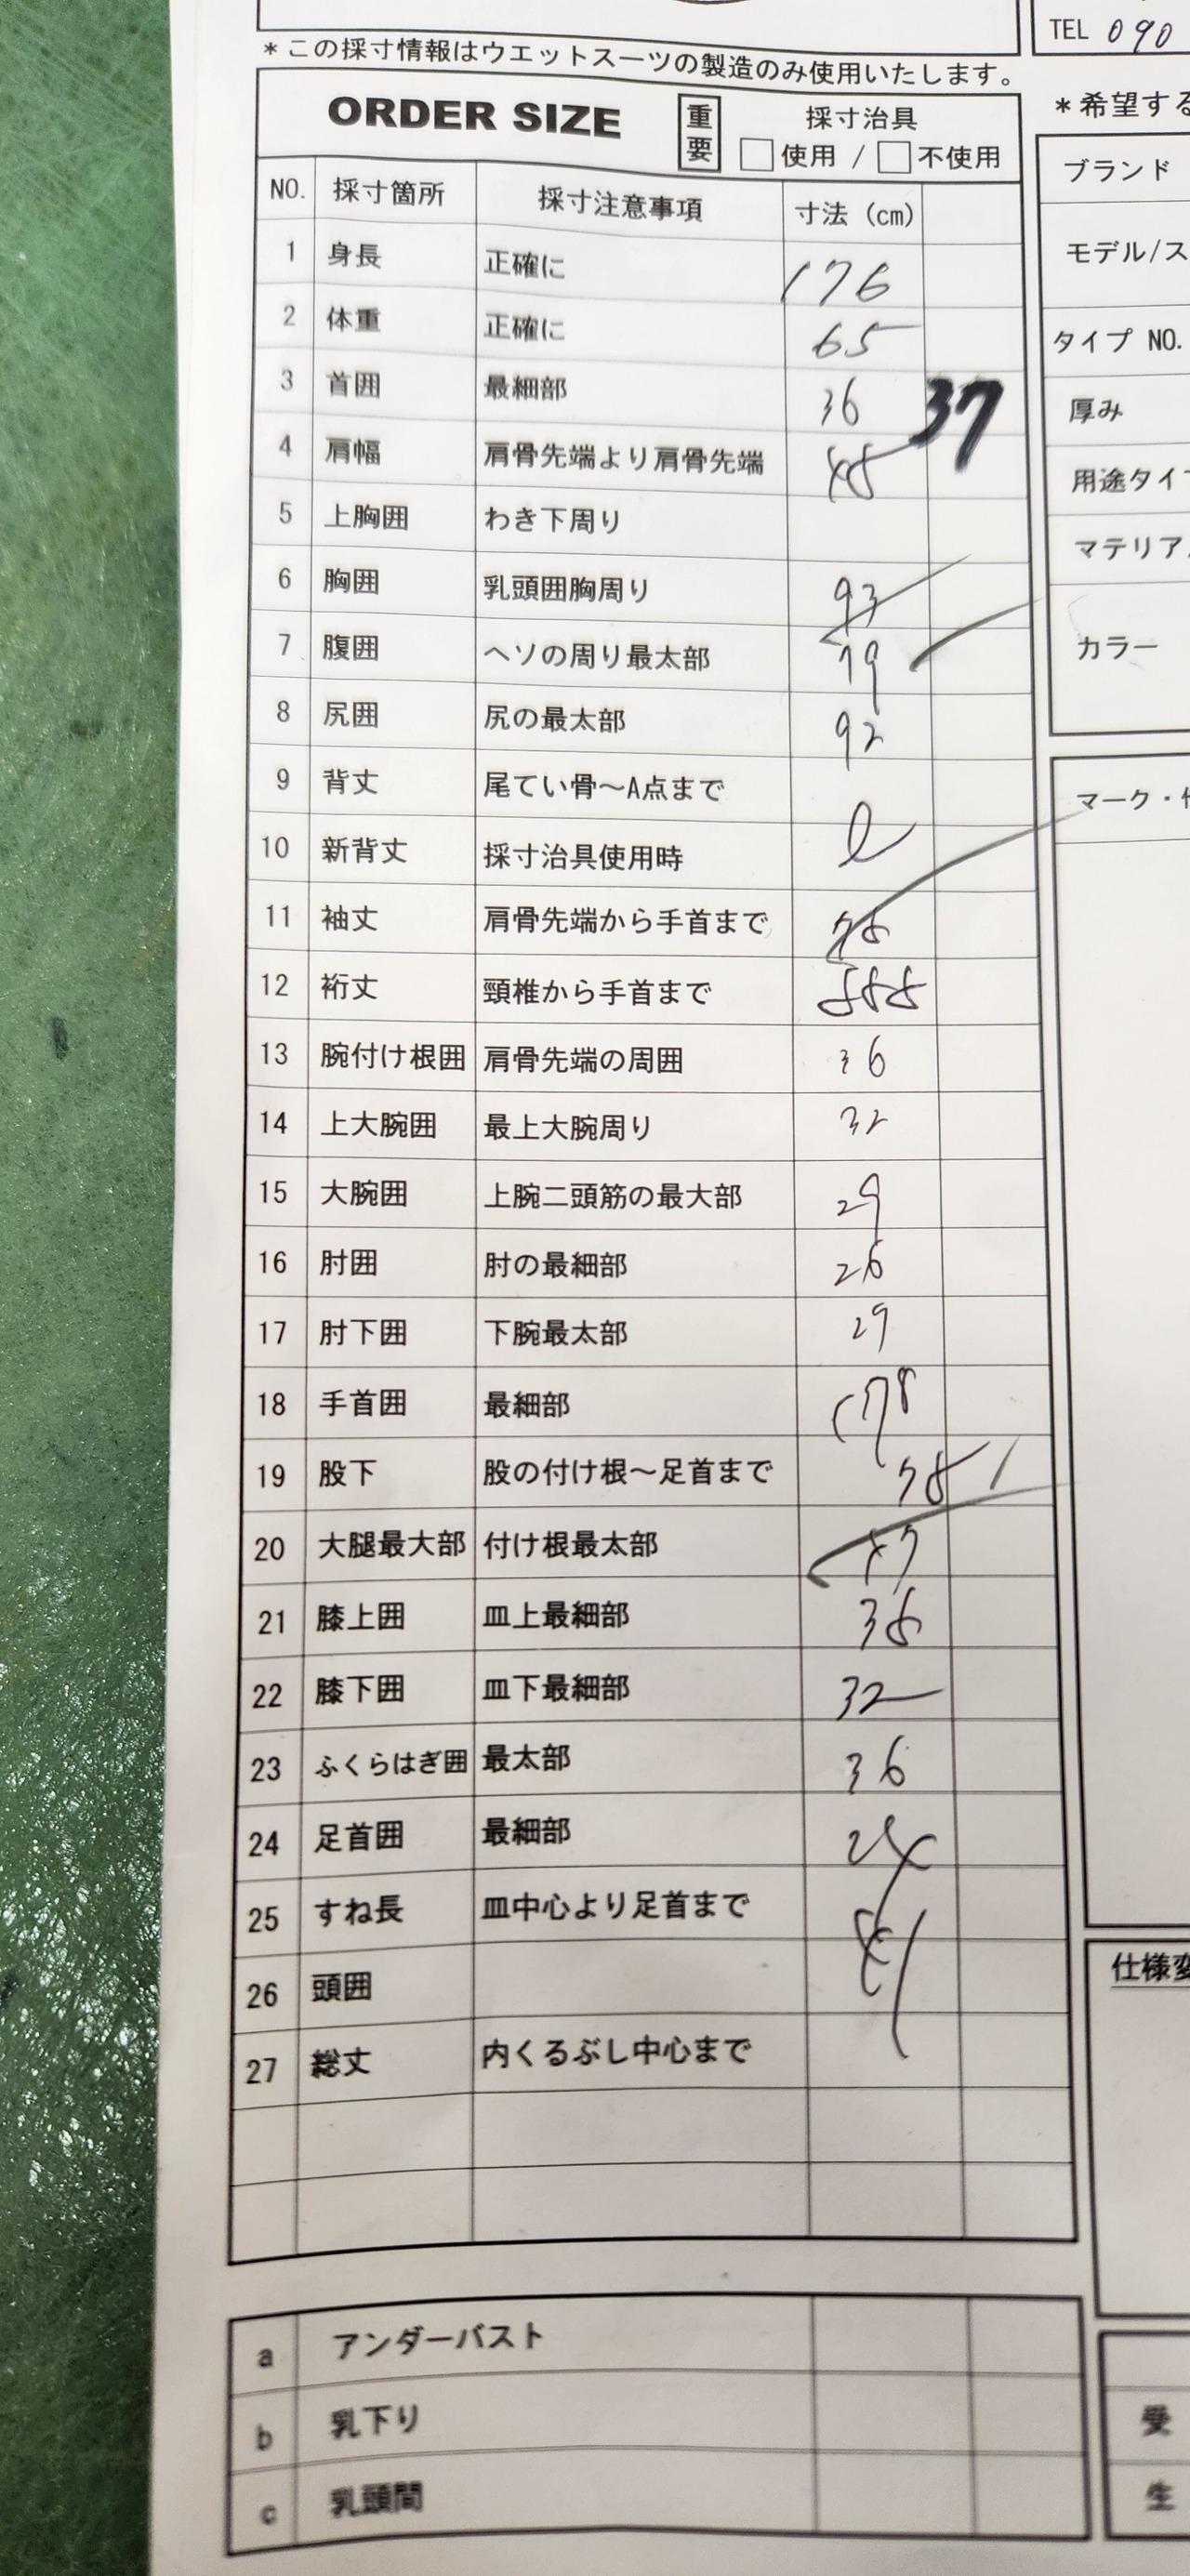 TEL 090
*この採寸情報はウエットスーツの製造のみ使用いたします。
ORDER SIZE 重要 採寸治具
□使用 / □不使用
*希望する
NO. 採寸箇所 採寸注意事項 寸法 (cm)
1 身長 正確に 176
2 体重 正確に 65
3 首囲 最細部 36 37
4 肩幅 肩骨先端より肩骨先端 45
5 上胸囲 わき下周り
6 胸囲 乳頭囲胸周り 93
7 腹囲 ヘソの周り最太部 79
8 尻囲 尻の最太部 92
9 背丈 尾てい骨～A点まで
10 新背丈 採寸治具使用時
11 袖丈 肩骨先端から手首まで
12 裄丈 頸椎から手首まで
13 腕付け根囲 肩骨先端の周囲 36
14 上大腕囲 最上大腕周り 32
15 大腕囲 上腕二頭筋の最大部 29
16 肘囲 肘の最細部 26
17 肘下囲 下腕最太部 29
18 手首囲 最細部 178
19 股下 股の付け根～足首まで
20 大腿最大部 付け根最太部 47
21 膝上囲 皿上最細部
22 膝下囲 皿下最細部 32
23 ふくらはぎ囲 最太部 36
24 足首囲 最細部
25 すね長 皿中心より足首まで
26 頭囲
27 総丈 内くるぶし中心まで
a アンダーバスト
b 乳下り
c 乳頭間
ブランド
モデル/ス
タイプ NO.
厚み
用途タイプ
マテリア
カラー
マーク・
仕様変
受
生